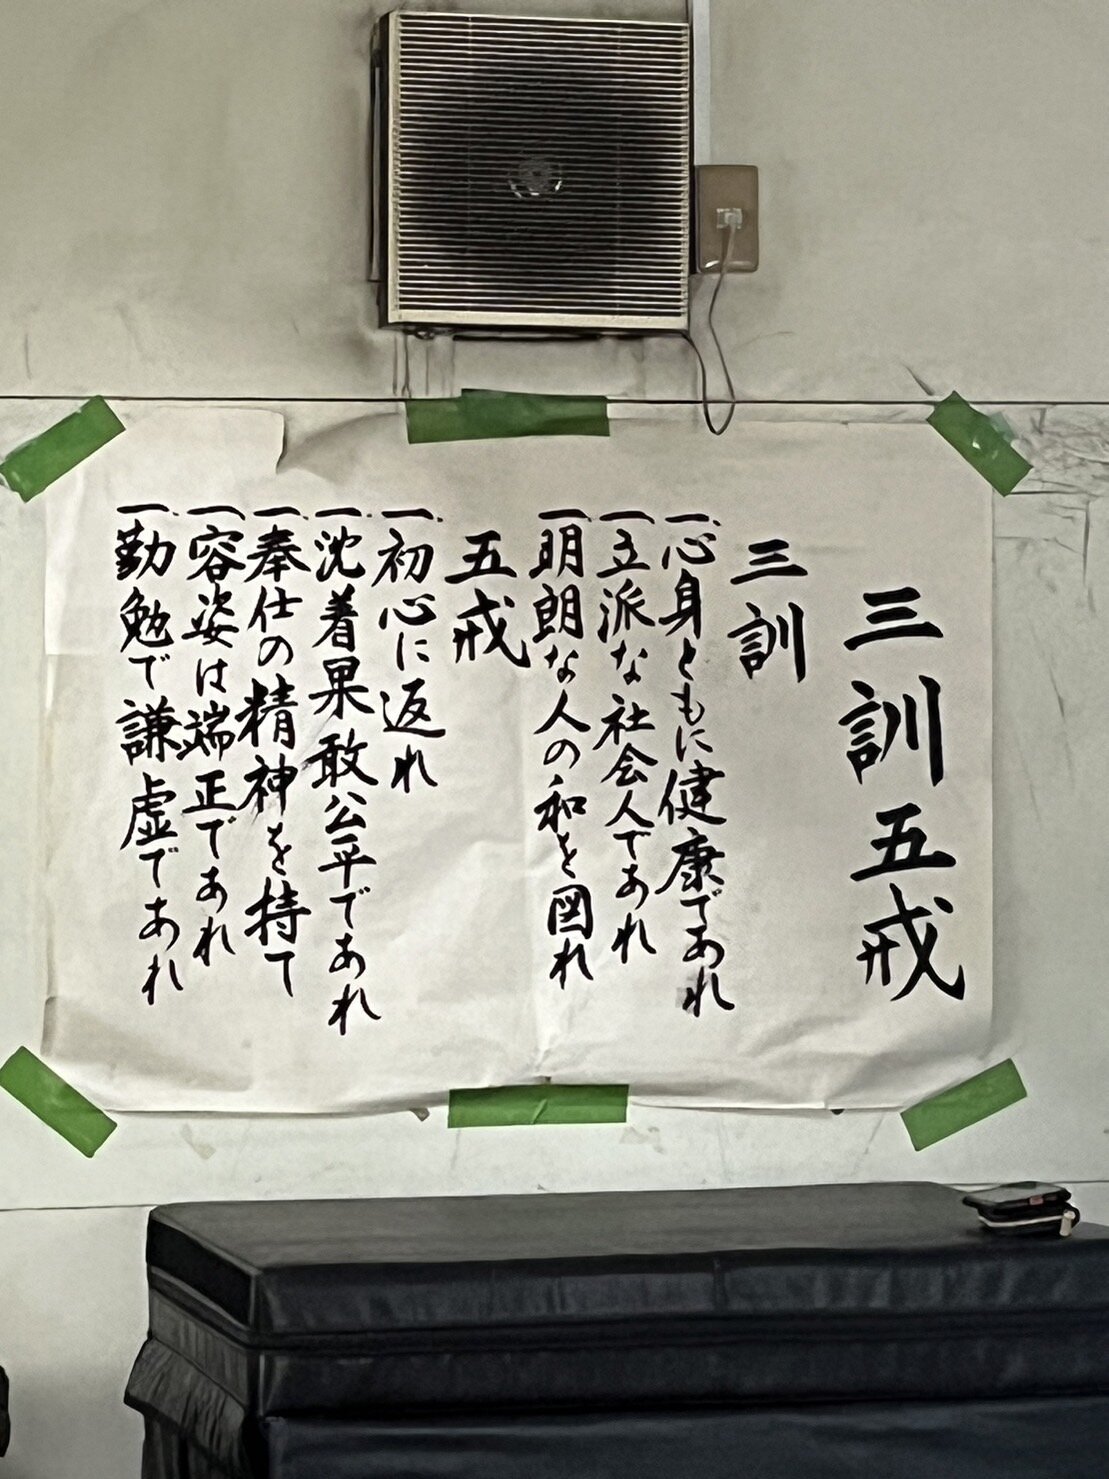 三訓五戒
三訓
一、心身ともに健康であれ
一、立派な社会人であれ
一、明朗な人の和を図れ
五戒
一、初心に返れ
一、沈着果敢公平であれ
一、奉仕の精神を持て
一、容姿は端正であれ
一、勤勉で謙虚であれ